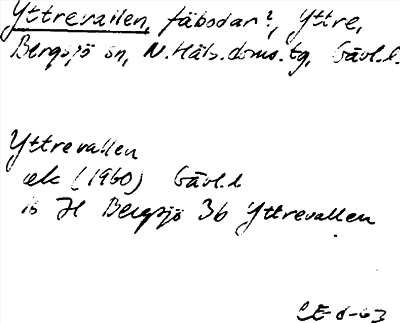 Yttrevallen, fäbodar?, Yttre,
Bergsjö sn, N. Häls. doms. tg, Gävl. l.
Yttrevallen
ek (1960) Gävl. l
16 H Bergsjö 3b Yttrevallen